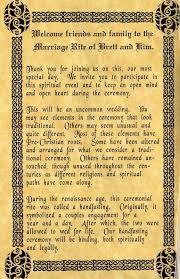 Welcome friends and family to the
Marriage Rite of Brett and Kim.
Thank you for joining us on this, our most
special day. We invite you to participate in
this spiritual event and to keep an open mind
and open heart during the ceremony.
This will be an uncommon wedding. You
may see elements in the ceremony that look
traditional. Others may seem unusual and
quite different. Most of these elements have
Pre-Christian roots. Some have been altered
and arranged for what we consider a tradi-
tional ceremony. Others have remained un-
touched, though unused throughout the cen-
turies as different religions and spiritual
paths have come along.
During the renaissance age, this ceremonial
rite was called a handfasting. Originally, it
symbolized a couples engagement for a
year and a day. After which the two were
allowed to wed for life. Our handfasting
ceremony will be binding, both spiritually
and legally.